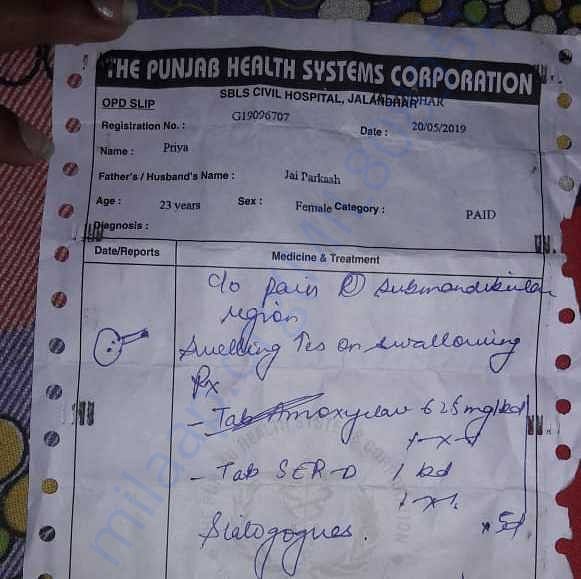 THE PUNJAB HEALTH SYSTEMS CORPORATION
SBLS CIVIL HOSPITAL, JALANDHAR
OPD SLIP
Registration No. : G19096707
Date : 20/05/2019
Name : Priya
Father's / Husband's Name : Jai Parkaah
Age : 23 years Sex : Female Category : PAID
Diagnosis :
Date/Reports Medicine & Treatment
c/o Pain R submandibular
region
Swelling ↑es on swallowing
Rx
- Tab Amoxyclav 625mg/bd
1-x-1
- Tab SER-D 1 bd
1-x-1
Sialogogues. x 5d
milaap.org